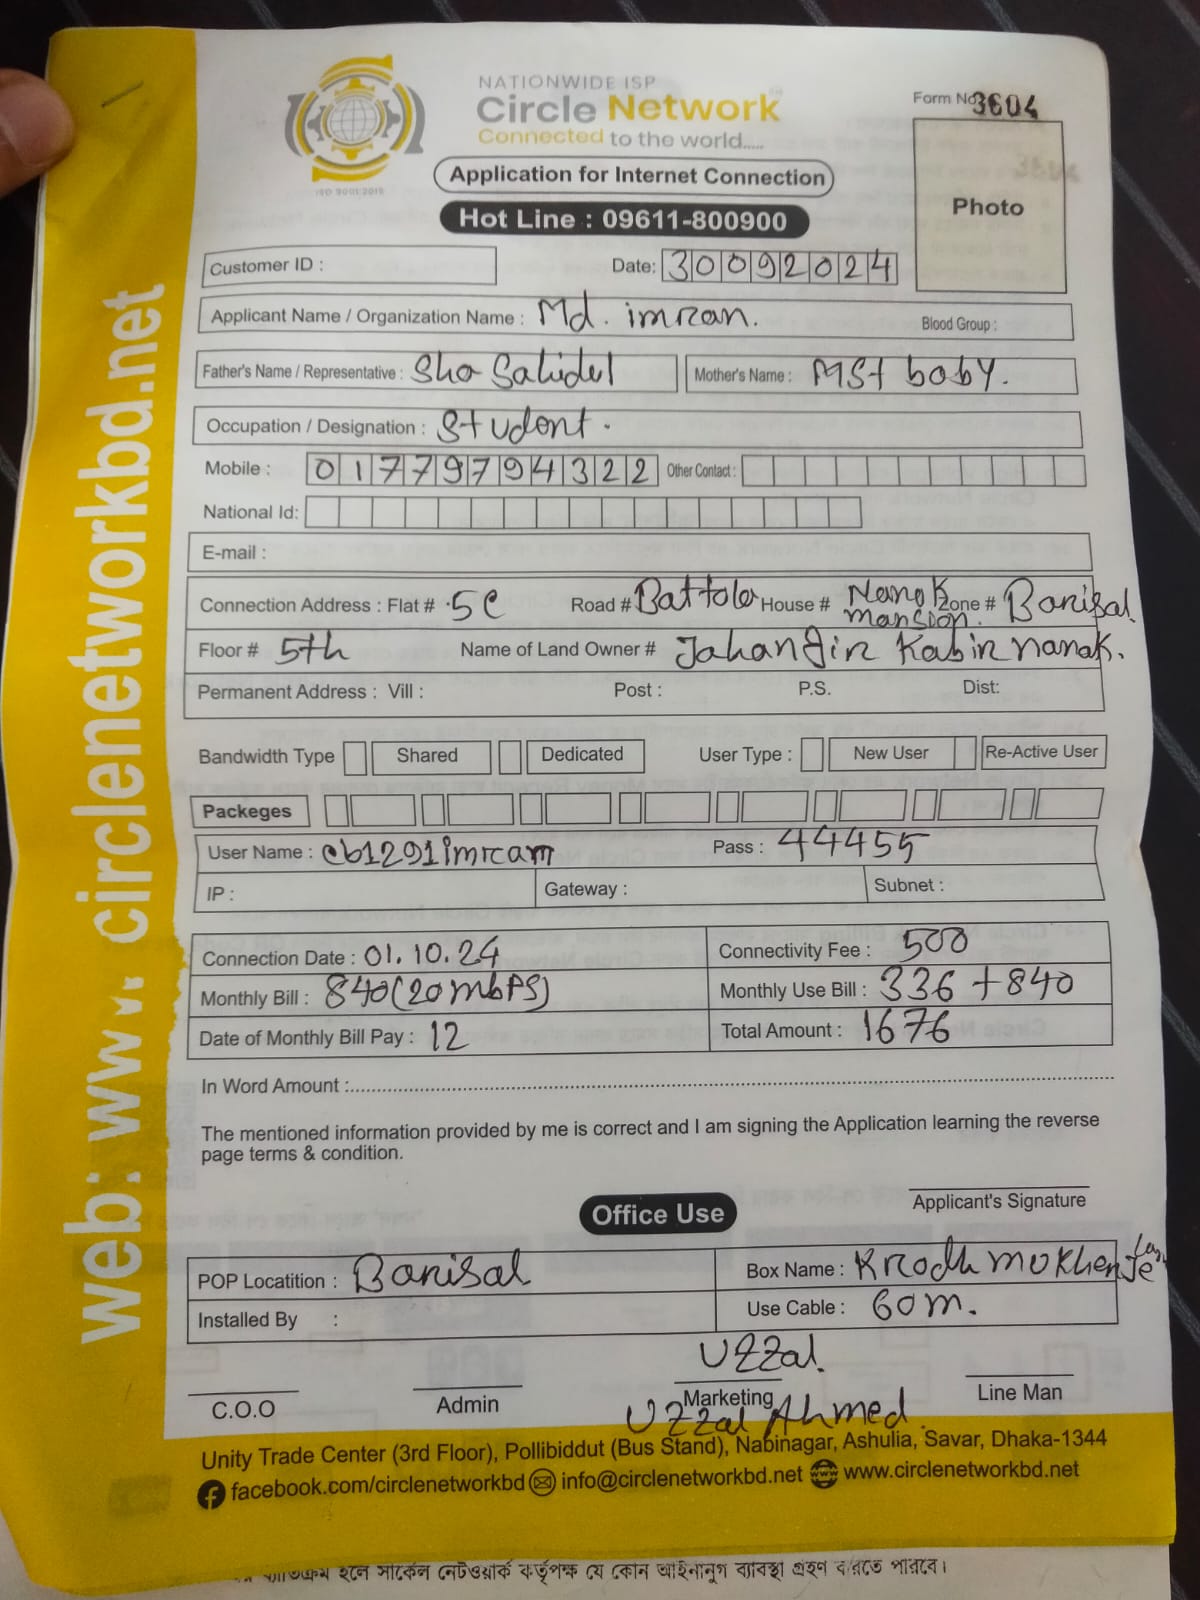 NATIONWIDE ISP
Circle Network
Connected to the world.....
ISO 9001:2015
Form No 3604
Application for Internet Connection
Photo
Hot Line : 09611-800900
Customer ID :
Date: 30092024
Applicant Name / Organization Name : Md. imran. Blood Group :
Father's Name / Representative : Sho Sahidul Mother's Name : MSt boby.
Occupation / Designation : Student.
Mobile : 01779794322 Other Contact :
National Id:
E-mail :
Connection Address : Flat # 5C Road # Battola House # Nanok mansion. Zone # Barisal
Floor # 5th Name of Land Owner # Jahangir Kabir nanak.
Permanent Address : Vill : Post : P.S. Dist:
Bandwidth Type Shared Dedicated User Type : New User Re-Active User
Packeges
User Name : cb1291imran Pass : 44455
IP : Gateway : Subnet :
Connection Date : 01.10.24 Connectivity Fee : 500
Monthly Bill : 840(20mbPS) Monthly Use Bill : 336+840
Date of Monthly Bill Pay : 12 Total Amount : 1676
In Word Amount :
The mentioned information provided by me is correct and I am signing the Application learning the reverse
page terms & condition.
Applicant's Signature
Office Use
POP Locatition : Barisal Box Name :
Installed By : Use Cable : 60m.
Uzzal.
C.O.O Admin Marketing Line Man
Uzzal Ahmed
Unity Trade Center (3rd Floor), Pollibiddut (Bus Stand), Nabinagar, Ashulia, Savar, Dhaka-1344
facebook.com/circlenetworkbd info@circlenetworkbd.net www.circlenetworkbd.net
web: www. circlenetworkbd.net
হলে সার্কেল নেটওয়ার্ক কর্তৃপক্ষ যে কোন আইনানুগ ব্যবস্থা গ্রহণ করতে পারবে।